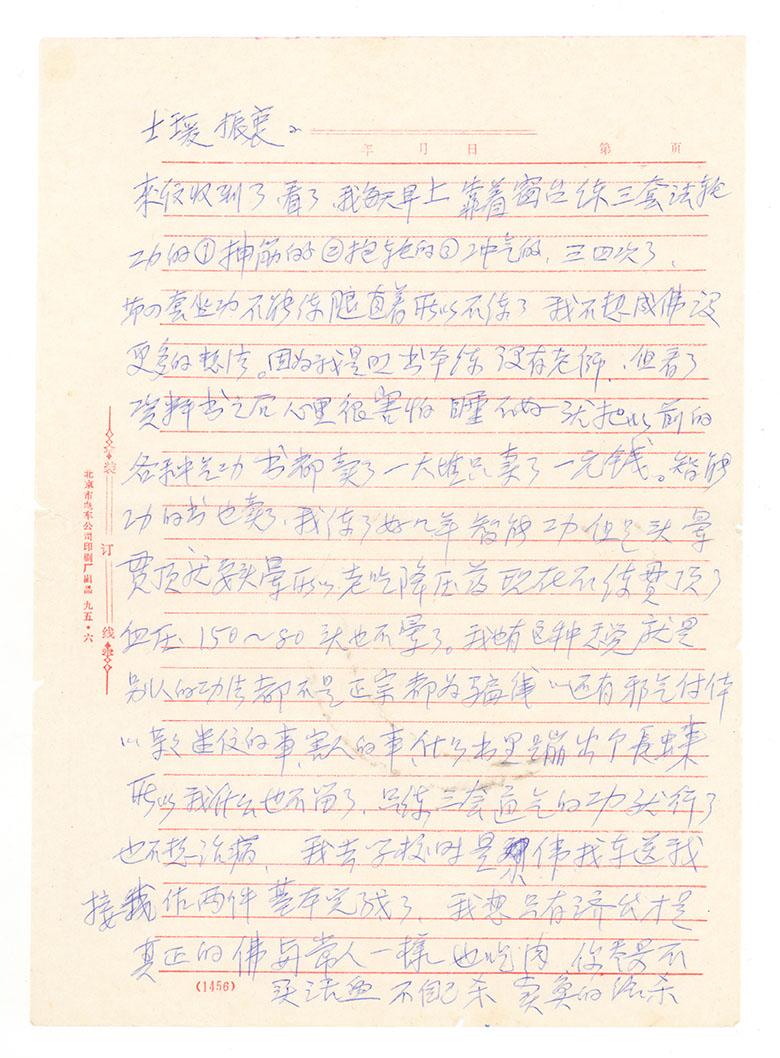 士瑗 振寰：
年 月 日 第 页
来信收到了，看了，我每天早上靠着窗台练三套法轮
功的①抽筋的②抱轮的③冲气的，三四次了，
第四套坐功不能练腿直着所以不练了 我不想成佛没
更多的想法。因为我是照书本练 没有老师，但看了
资料书之后心里很害怕 睡不好 就把以前的
各种气功书都卖了 一大堆只卖了一元钱。智能
功的书也卖了，我练了好几年智能功 但是头晕
贯顶就要头晕所以老吃降压药 现在不练贯顶了
血压 150～80 头也不晕了。我也有这种感觉 就是
别人的功法都不是正宗都为骗钱 还有邪气付体
迷信的事，害人的事，什么书里蹦出个长虫来
所以我什么也不留了，只练三套通气的功就行了
也不想治病， 我去学校时是 伟找车送我
接我 两件基本完成了，我想只有济公才是
真正的佛与常人一样 也吃肉 你 不
买活鱼 不自己杀 卖鱼的给杀
装 订 线
北京市电车公司印刷厂出品 九五·六
(1456)